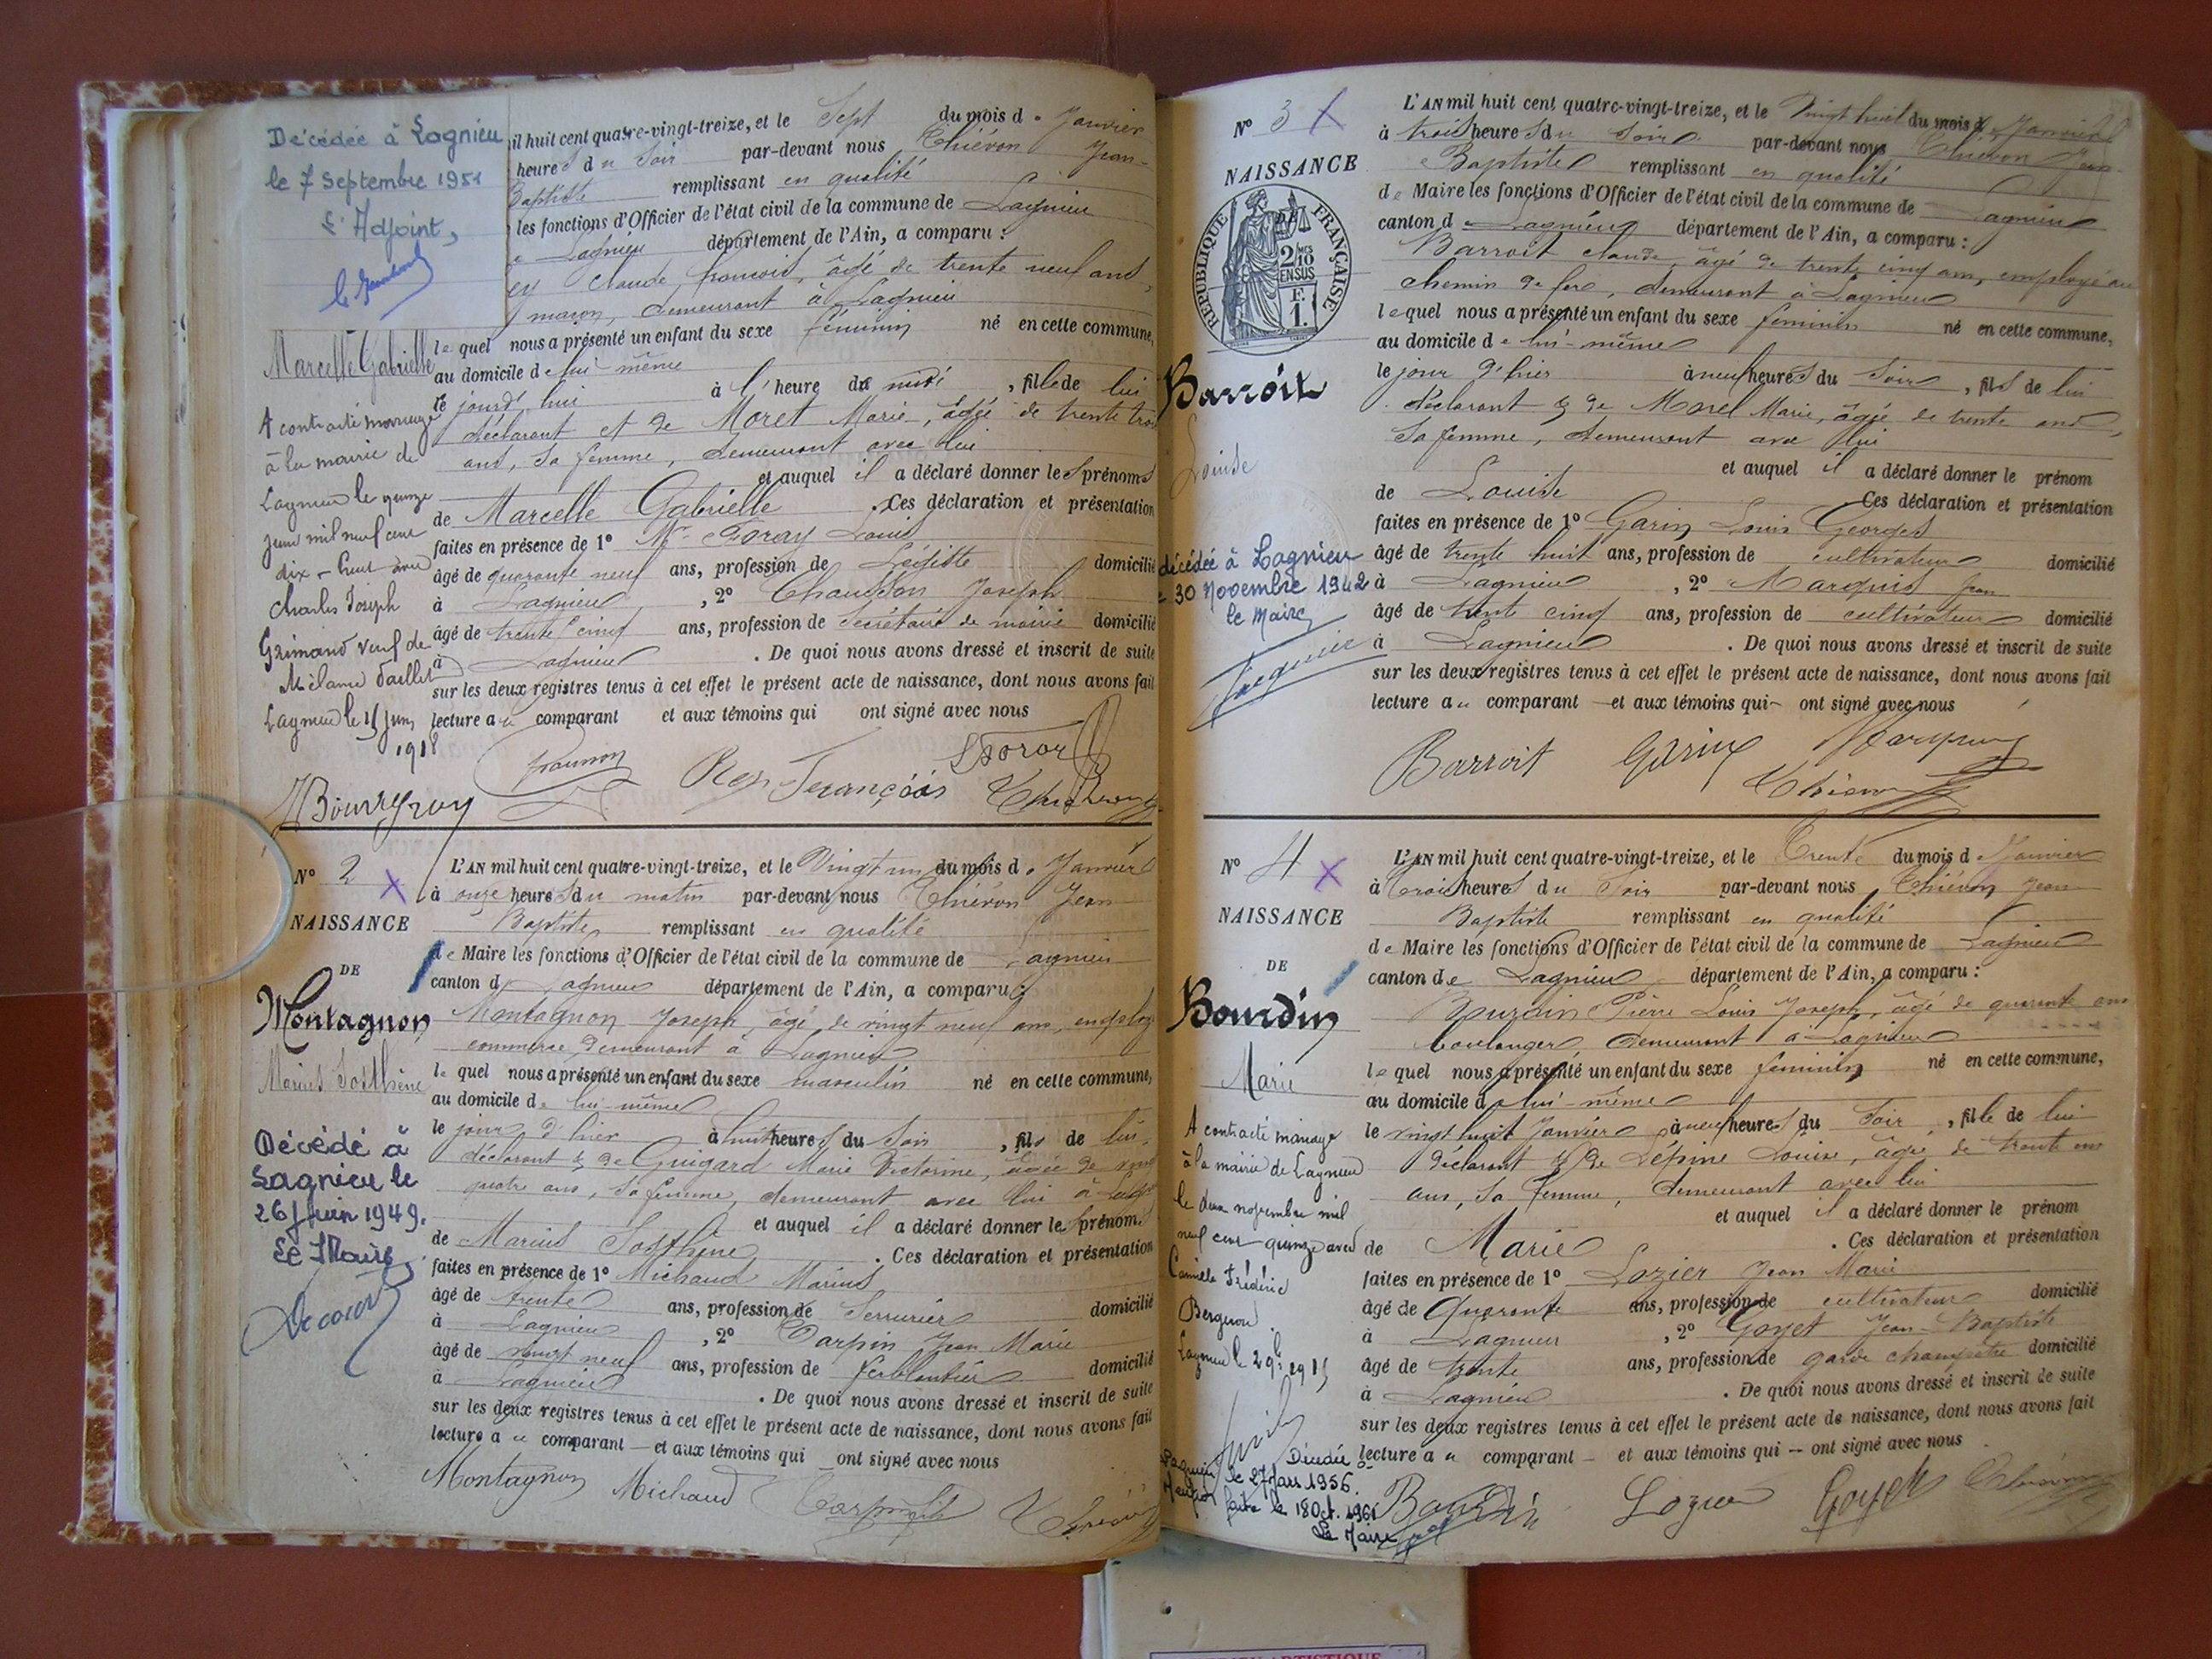 Décédée à Lagnieu
le 7 Septembre 1951
L'Adjoint,
il huit cent quatre-vingt-treize, et le Sept du mois de Janvier
heures du Soir par-devant nous Thiévon Jean-
Baptiste remplissant en qualité
les fonctions d'Officier de l'état civil de la commune de Lagnieu
Lagnieu département de l'Ain, a comparu :
ey Claude françois, âgé de trente neuf ans,
maçon, demeurant à Lagnieu
Marcelle Gabrielle
lequel nous a présenté un enfant du sexe féminin né en cette commune,
au domicile de lui-même
le jourd'hui à l'heure de midi, fille de lui
déclarant et de Moret Marie, âgée de trente trois
ans, sa femme, demeurant avec lui
et auquel il a déclaré donner les prénoms
de Marcelle Gabrielle. Ces déclaration et présentation
faites en présence de 1° Mr Foray Louis
âgé de quarante neuf ans, profession de Légiste domicilié
à Lagnieu, 2° Chausson Joseph
âgé de trente cinq ans, profession de Secrétaire de mairie domicilié
à Lagnieu. De quoi nous avons dressé et inscrit de suite
sur les deux registres tenus à cet effet le présent acte de naissance, dont nous avons fait
lecture au comparant et aux témoins qui ont signé avec nous
A contracté mariage
à la mairie de
Lagnieu le quinze
juin mil neuf cent
dix-huit avec
Charles Joseph
Grimand veuf de
Mélanie
Lagnieu le 15 juin
1918
Rey François
N° 2
NAISSANCE
DE
Montagnon
Marius Sosthène
Décédé à
Lagnieu le
26 Juin 1949.
Le Maire,
L'AN mil huit cent quatre-vingt-treize, et le Vingt un du mois de Janvier
à onze heures du matin par-devant nous Thiévon Jean
Baptiste remplissant en qualité
de Maire les fonctions d'Officier de l'état civil de la commune de Lagnieu
canton de Lagnieu département de l'Ain, a comparu :
Montagnon Joseph, âgé de vingt neuf ans, employé
commerce demeurant à Lagnieu
lequel nous a présenté un enfant du sexe masculin né en cette commune,
au domicile de lui-même
le jour d'hier à huit heures du Soir, fils de lui
déclarant & de Guigard Marie Victorine, âgée de vingt
quatre ans, sa femme, demeurant avec lui à
et auquel il a déclaré donner les prénoms
de Marius Sosthène. Ces déclaration et présentation
faites en présence de 1° Michaud Marius
âgé de trente ans, profession de Serrurier domicilié
à Lagnieu, 2° Carpin Jean Marie
âgé de vingt neuf ans, profession de ferblantier domicilié
à Lagnieu. De quoi nous avons dressé et inscrit de suite
sur les deux registres tenus à cet effet le présent acte de naissance, dont nous avons fait
lecture au comparant — et aux témoins qui — ont signé avec nous
Montagnon Michaud
N° 3
NAISSANCE
DE
RÉPUBLIQUE FRANÇAISE
2/10 MES
EN SUS
F.
1.
Barroit
Louise
décédée à Lagnieu
30 Novembre 1942
le Maire,
L'AN mil huit cent quatre-vingt-treize, et le Vingt huit du mois de Janvier
à trois heures du Soir par-devant nous Thiévon Jean
Baptiste remplissant en qualité
de Maire les fonctions d'Officier de l'état civil de la commune de Lagnieu
canton de Lagnieu département de l'Ain, a comparu :
Barroit Claude, âgé de trente cinq ans, employé au
chemin de fer, demeurant à Lagnieu
lequel nous a présenté un enfant du sexe féminin né en cette commune,
au domicile de lui-même
le jour d'hier à neuf heures du Soir, fils de lui
déclarant & de Morel Marie, âgée de trente ans,
sa femme, demeurant avec lui
et auquel il a déclaré donner le prénom
de Louise Ces déclaration et présentation
faites en présence de 1° Garin Louis Georges
âgé de trente huit ans, profession de cultivateur domicilié
à Lagnieu, 2° Marquis Jean
âgé de trente cinq ans, profession de cultivateur domicilié
à Lagnieu. De quoi nous avons dressé et inscrit de suite
sur les deux registres tenus à cet effet le présent acte de naissance, dont nous avons fait
lecture au comparant — et aux témoins qui — ont signé avec nous
Barroit Garin Marquis
N° 4
NAISSANCE
DE
Bourdin
Marie
A contracté mariage
à la mairie de Lagnieu
le deux novembre mil
neuf cent quinze avec
Camille Frédéric
Bergeron
L'AN mil huit cent quatre-vingt-treize, et le Trente du mois d Janvier
à Trois heures du Soir par-devant nous Thiévon Jean
Baptiste remplissant en qualité
de Maire les fonctions d'Officier de l'état civil de la commune de Lagnieu
canton de Lagnieu département de l'Ain, a comparu :
Bourdin Pierre Louis Joseph, âgé de quarante ans
boulanger, demeurant à Lagnieu
lequel nous a présenté un enfant du sexe féminin né en cette commune,
au domicile de lui-même
le vingt huit Janvier à neuf heures du Soir, fille de lui
déclarant & de Lépine Louise, âgée de trente un
ans, sa femme, demeurant avec lui
et auquel il a déclaré donner le prénom
de Marie. Ces déclaration et présentation
faites en présence de 1° Lozier Jean Marie
âgé de Quarante ans, profession de cultivateur domicilié
à Lagnieu, 2° Goyet Jean-Baptiste
âgé de trente ans, profession de garde champêtre domicilié
à Lagnieu. De quoi nous avons dressé et inscrit de suite
sur les deux registres tenus à cet effet le présent acte de naissance, dont nous avons fait
lecture au comparant — et aux témoins qui — ont signé avec nous
Décédée à
le 27 Mars 1956.
faite le 18 Oct. 1961
Le Maire
Bourdin Lozier Goyet